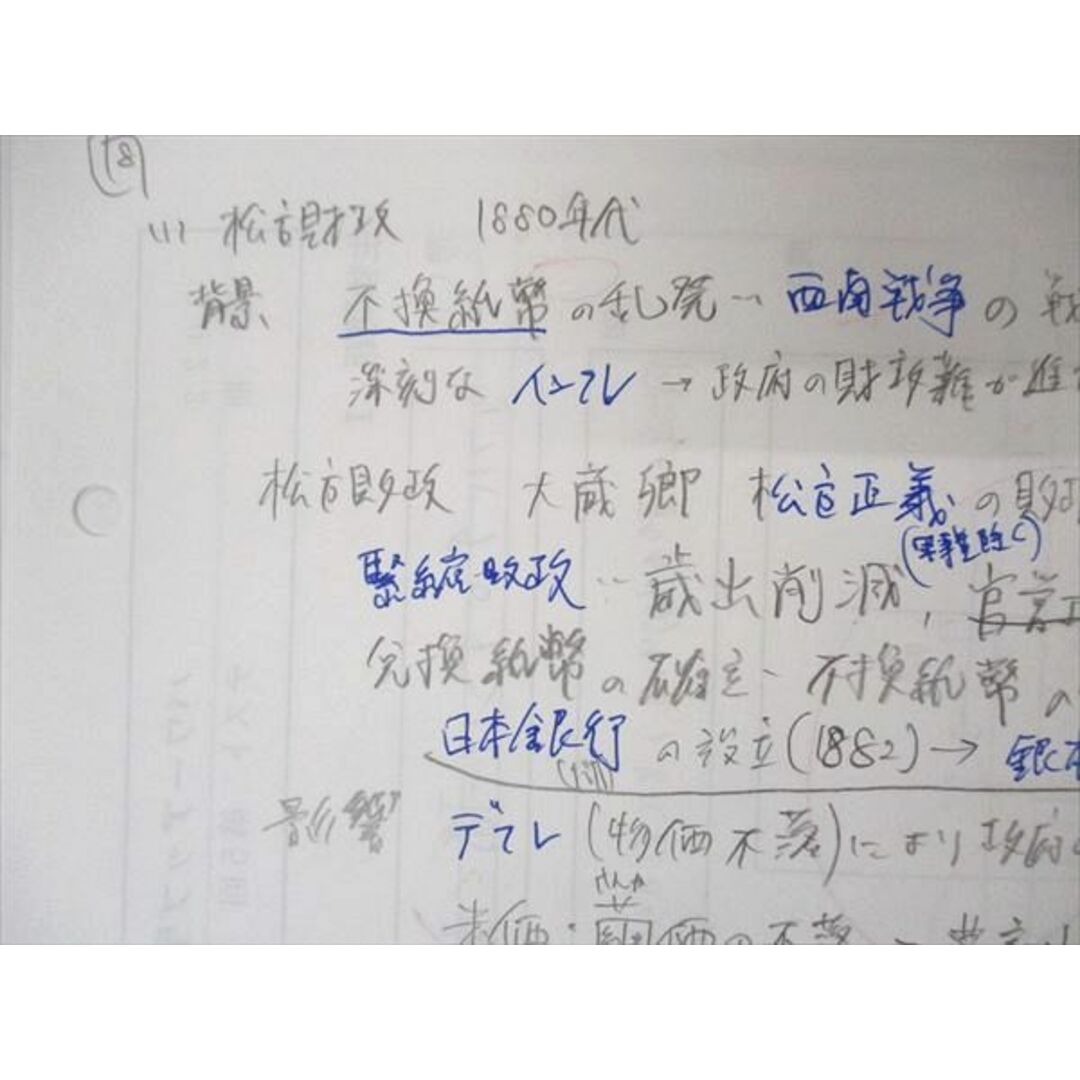 18
(1) 松方財政 1880年代
背景 不換紙幣の乱発… 西南戦争の戦
深刻な インフレ → 政府の財政難が進
松方財政 大蔵卿 松方正義の財政
(軍事費除く)
緊縮財政 … 歳出削減, 官営工
兌換紙幣の確立… 不換紙幣の
日本銀行の設立(1882) → 銀本
影響 デフレ (物価下落)により政府の
けんか
米価・繭価の下落